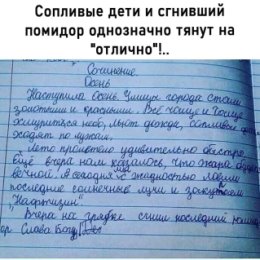 Сопливые дети и сгнивший
помидор однозначно тянут на
"отлично"!..
Сочинение.
Осень
Наступила осень. Улицы города стали
золотыми и красными. Всё чаще и чаще
хмурится небо, льют дожди, сопливые дети
ходят по лужам.
Лето пролетело удивительно быстро.
Ещё вчера нам казалось, что жара будет
вечной. А сегодня мы с жадностью ловим
последние солнечные лучи и
"Нафтизин"
Вчера на грядке сгнил последний
Слава Богу